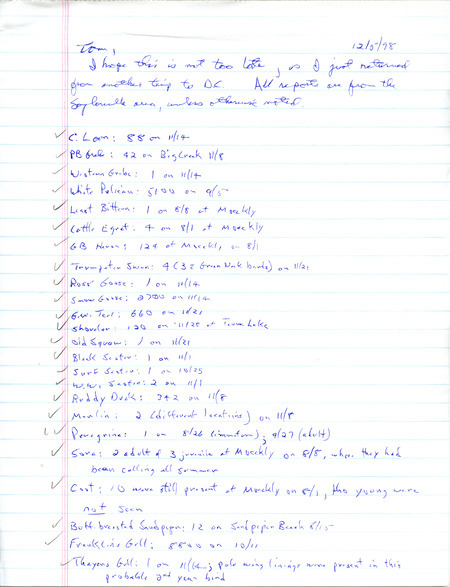 12/5/98
Tom,
I hope this is not too late, as I just returned
from another trip to DC. All reports are from the
Saylorville area, unless otherwise noted.
C. Loon: 88 on 11/14
PB Grebe: 42 on Big Creek 11/8
Western Grebe: 1 on 11/14
White Pelican: 5100 on 9/5
Least Bittern: 1 on 8/8 at Moeckly
Cattle Egret: 4 on 8/1 at Moeckly
GB Heron: 124 at Moeckly on 8/1
Trumpeter Swan: 4 (3 = Green Neck bands) on 11/21
Ross' Goose: 1 on 11/14
Snow Goose: 2700 on 11/14
G.W. Teal: 660 on 10/21
Shoveler: 120 on 11/25 at Teum Lake
Old Squaw: 1 on 11/21
Black Scoter: 1 on 11/1
Surf Scoter: 1 on 10/25
W.W. Scoter: 2 on 11/1
Ruddy Duck: 742 on 11/8
Merlin: 2 (different locations) on 11/8
Peregrine: 1 on 8/26 (immature); 9/27 (adult)
Sora: 2 adult & 3 juvenile at Moeckly on 8/8, where they had
been calling all summer
Coot: 10 were still present at Moeckly on 8/1, tho young were
not seen
Buff-breasted Sandpiper: 12 on Sandpiper Beach 8/15
Franklin's Gull: 8800 on 10/11
Thayer's Gull: 1 on 11/14; pale wing linings were present in this
probable 2nd year bird